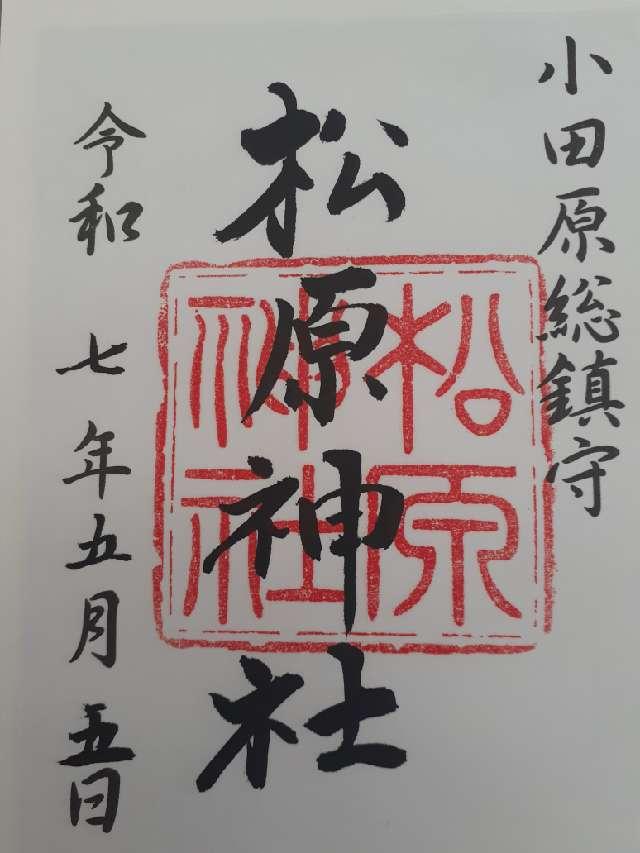 小田原総鎮守
松原神社
松原神社
令和 七年五月 五日